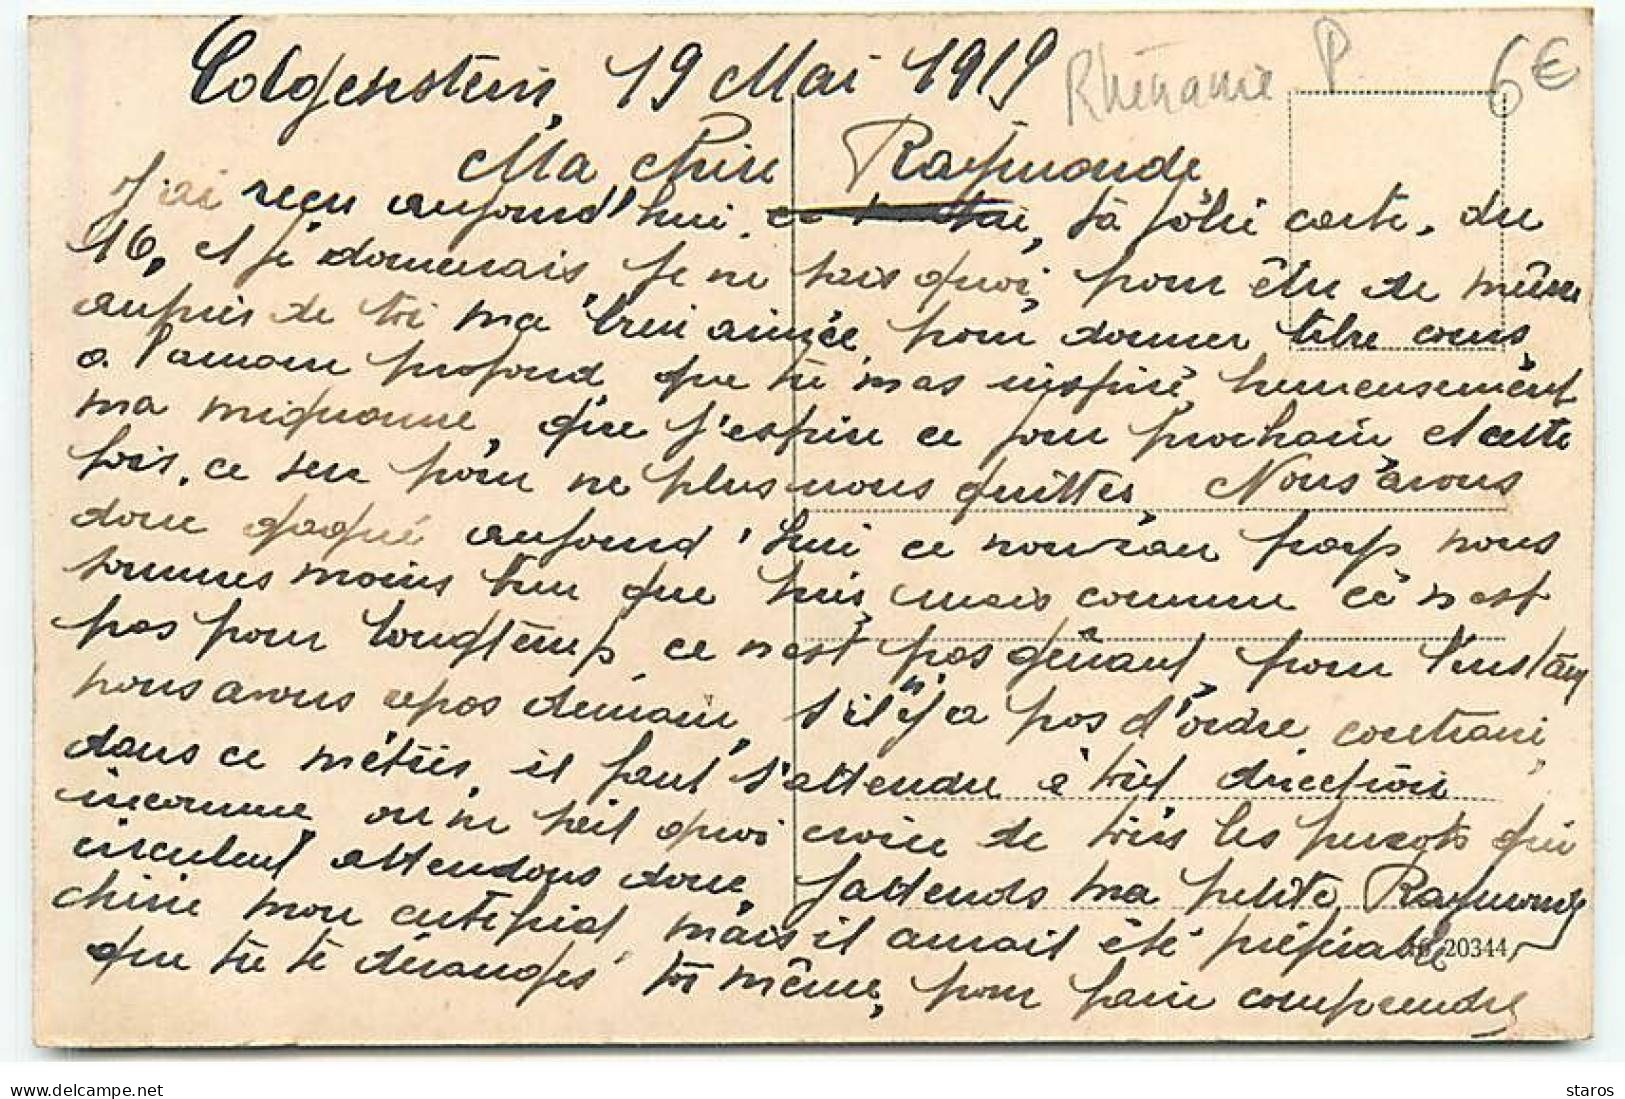 Colgenstein, 19 Mai 1919
Rhénanie P 6€
Ma chère Raymonde
J'ai reçu aujourd'hui, ta jolie carte, du
16, et je donnerais je ne sais quoi, pour être de même
auprès de toi ma bien aimée, pour donner libre cours,
a l'amour profond que tu m'as inspiré, heureusement
ma mignonne, que j'espère ce jour prochain, et cette
fois, ce sera pour ne plus nous quitter, Nous avons
donc gagné aujourd'hui ce nouveau pays nous
sommes moins bien que hier, mais comme ce n'est
pas pour longtemps, ce n'est pas gênant, pour l'instant
nous avons repos demain, s'il n'y a pas d'ordre contraire,
dans ce métier, il faut s'attendre à tout direction
inconnue ou ne sait quoi croire de tous les qui
circulent attendons donc, j'attends ma petite Raymonde
chérie mon mais il aurait été préférable
que tu te déranges toi même, pour faire comprendre
20344
delcampe.net
staros